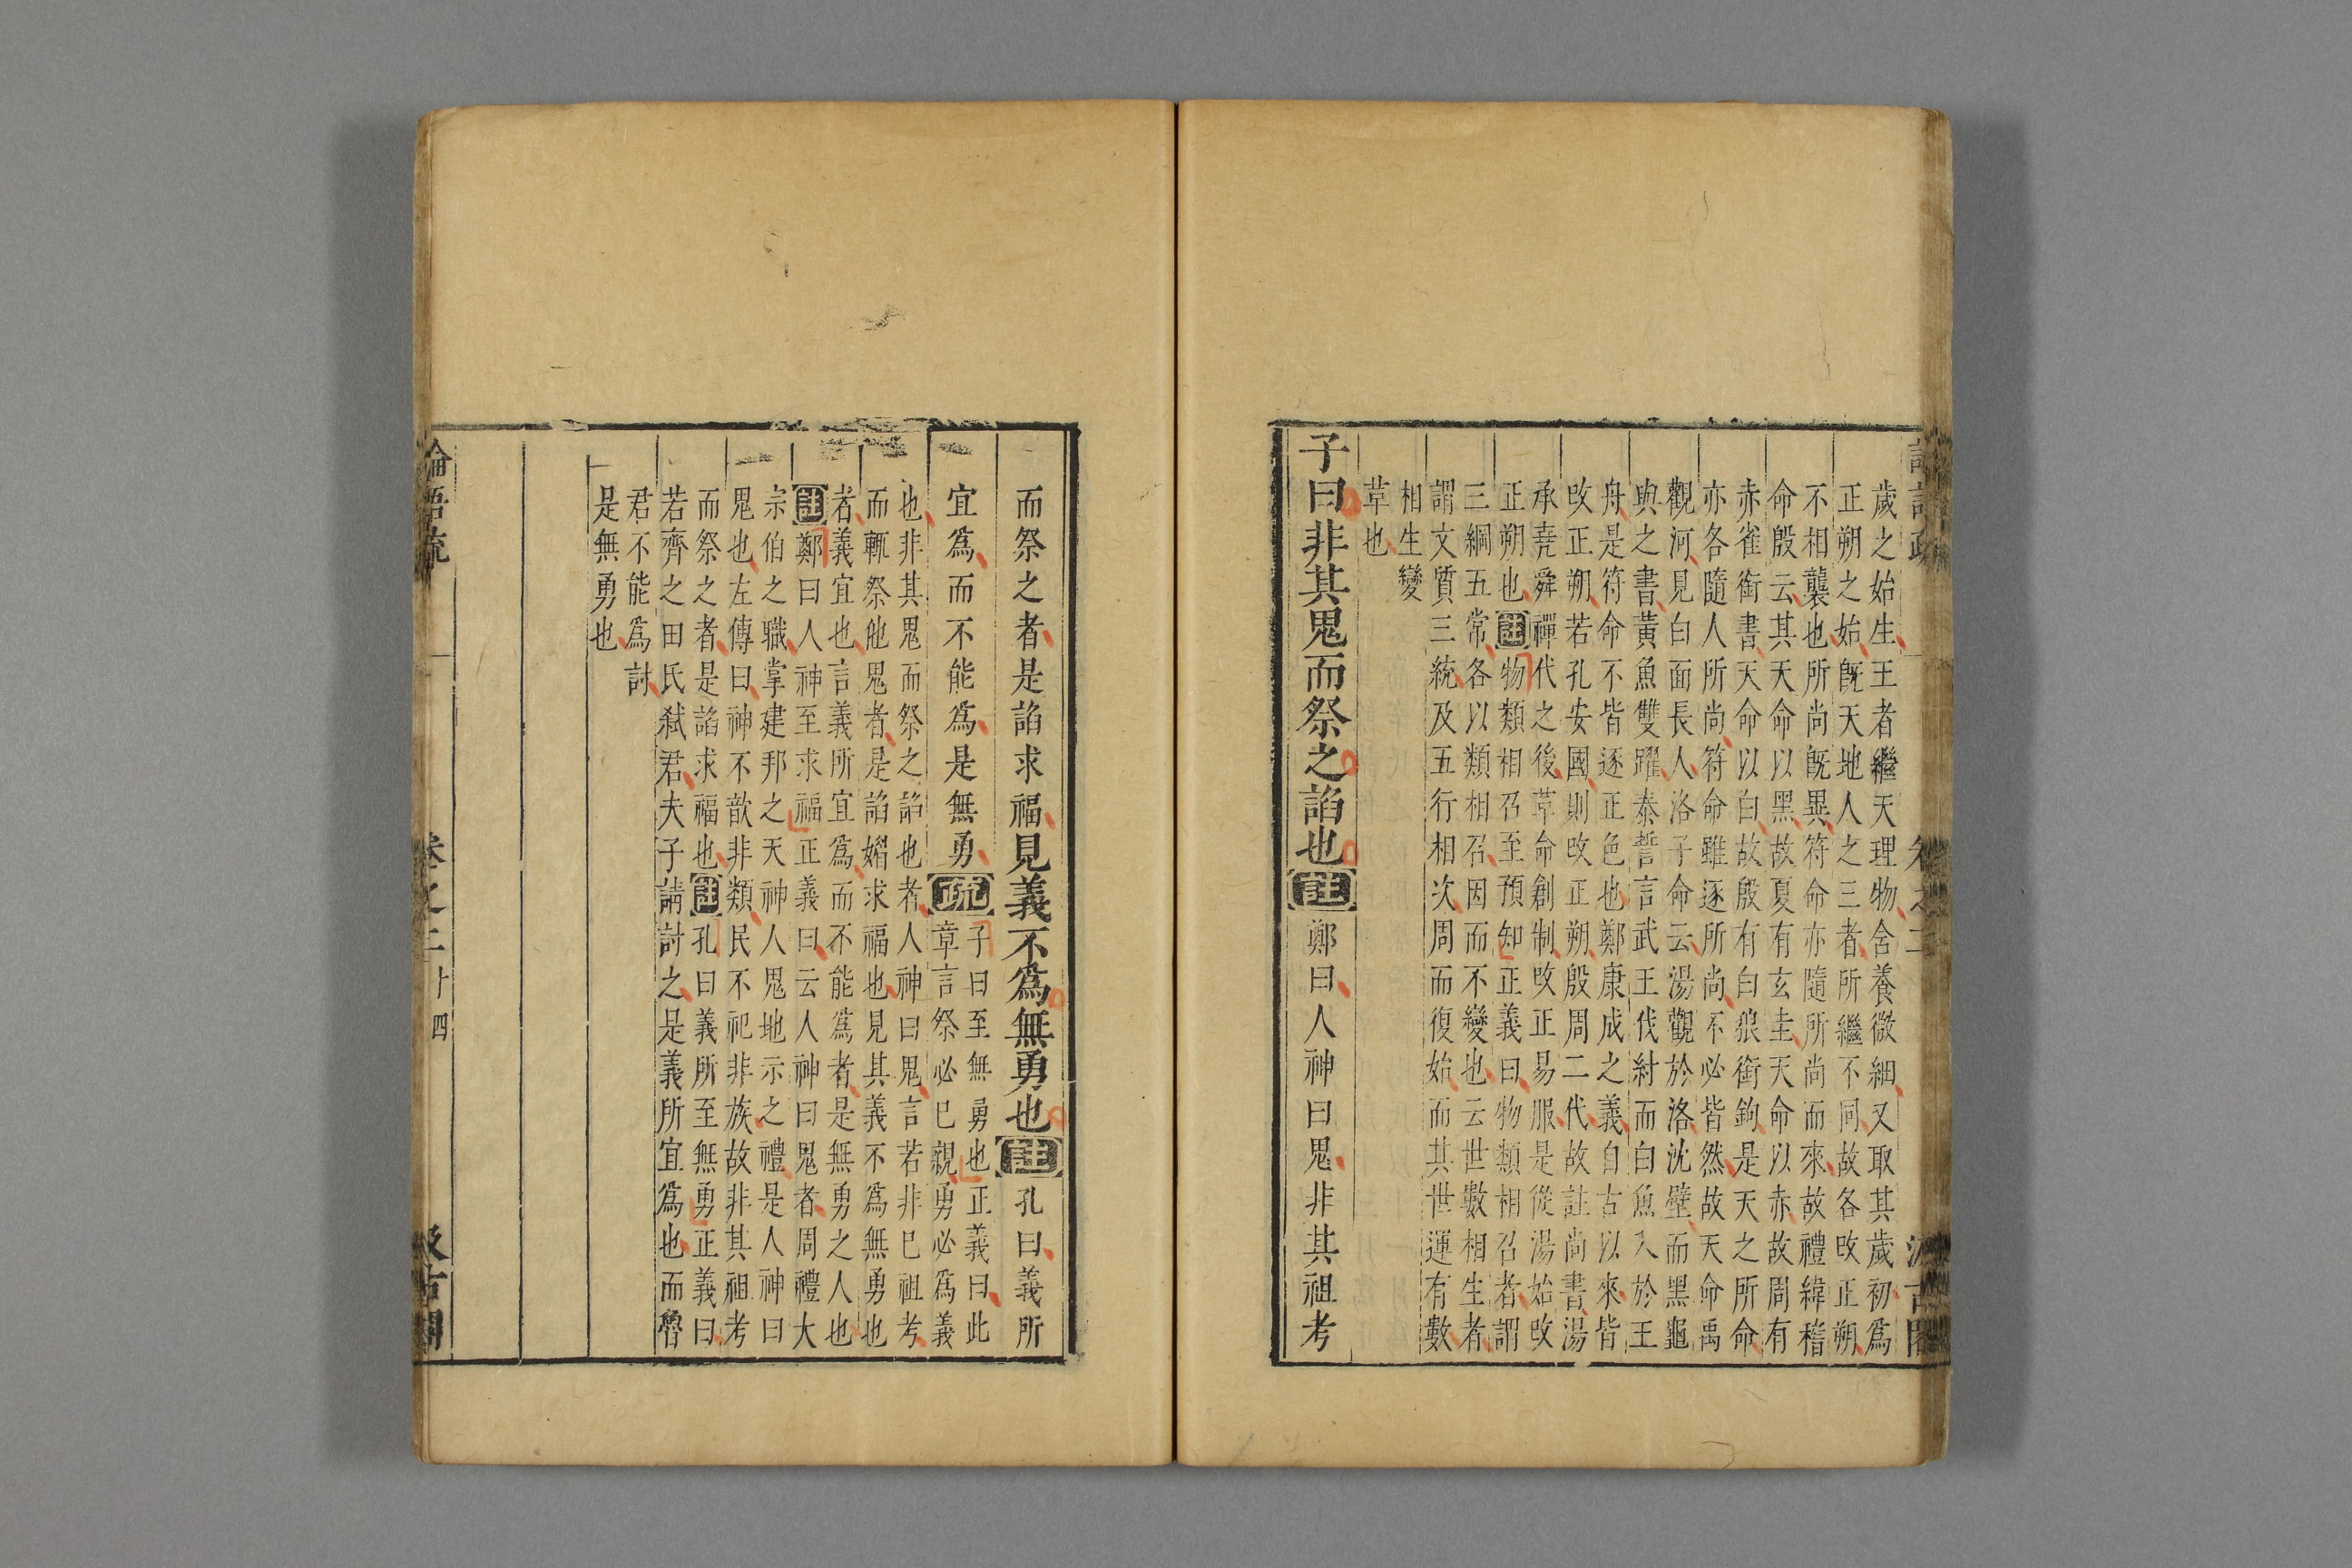 歲之始生王者繼天理物含養微細又取其歲初爲
正朔之始旣天地人之三者所繼不同故各改正朔
不相襲也所尚旣異符命亦隨所尚而來故禮緯稽
命殷云其天命以黑故夏有玄圭天命以赤故周有
赤雀銜書天命以白故殷有白狼銜鉤是天之所命
亦各隨人所尚符命雖逐所尚不必皆然故天命禹
觀河見白面長人洛子命云湯觀於洛沈璧而黑龜
與之書黃魚雙躍泰誓言武王伐紂而白魚入於王
舟是符命不皆逐正色也鄭康成之義自古以來皆
改正朔若孔安國則改正朔殷周二代故註尚書湯
承堯舜禪代之後革命創制改正易服是從湯始改
正朔也註物類相召至預知正義曰物類相召者謂
三綱五常各以類相召因而不變也云世數相生者
謂文質三統及五行相次周而復始而其世運有數
相生變
革也
子曰非其鬼而祭之諂也註鄭曰人神曰鬼非其祖考
而祭之者是諂求福見義不爲無勇也註孔曰義所
宜爲而不能爲是無勇疏子曰至無勇也正義曰此
章言祭必已親勇必爲義
也非其鬼而祭之諂也者人神曰鬼言若非已祖考
而輒祭他鬼者是諂媚求福也見其義不爲無勇也
者義宜也言義所宜爲而不能爲者是無勇之人也
註鄭曰人神至求福正義曰云人神曰鬼者周禮大
宗伯之職掌建邦之天神人鬼地示之禮是人神曰
鬼也左傳曰神不歆非類民不祀非族故非其祖考
而祭之者是諂求福也註孔曰義所至無勇正義曰
若齊之田氏弒君夫子請討之是義所宜爲也而魯
君不能爲討
是無勇也
論語疏
卷之二
十四
汲古閣